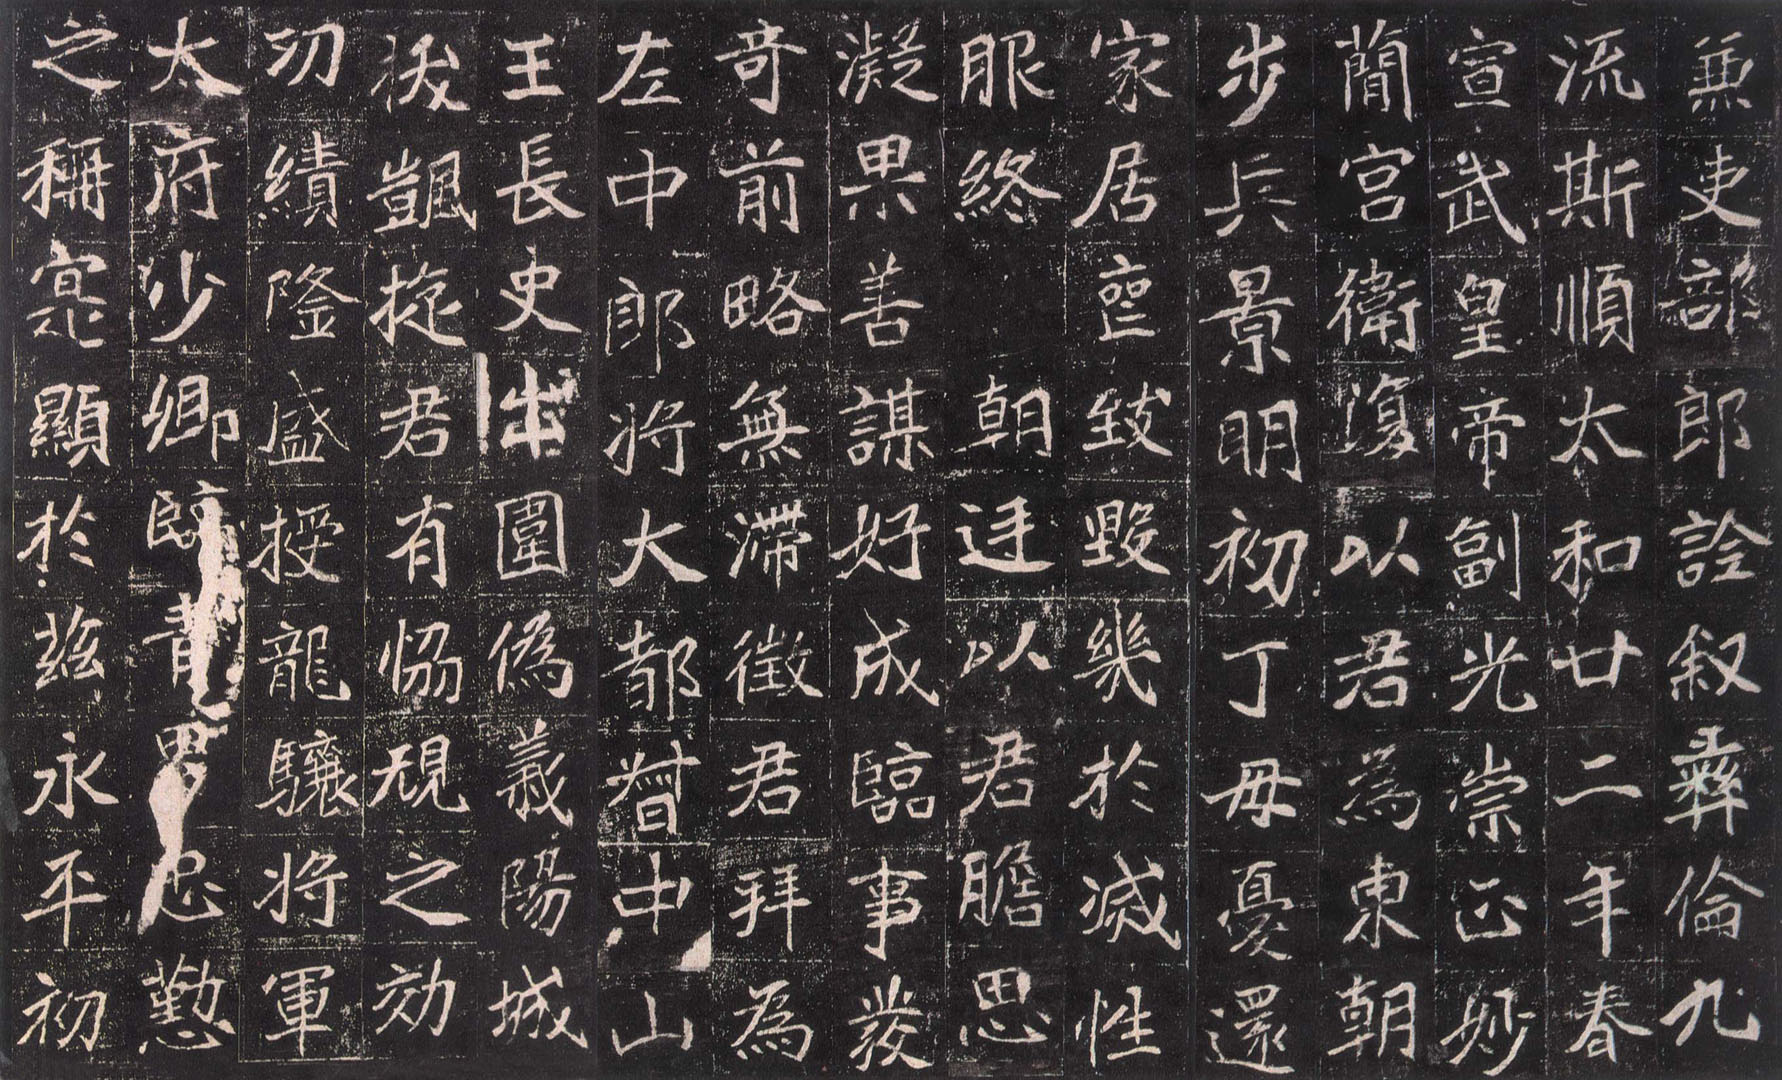 兼吏部郎詮叙彝倫九
流斯順太和廿二年春
宣武皇帝副光崇正妙
簡宮衛復以君為東朝
步兵景明初丁母憂還
家居喪致毀幾於滅性
服終 朝廷以君膽思
凝果善謀好成臨事發
奇前略無滯徵君拜為
左中郎將大都督中山
王長史出圍偽義陽城
拔颽旋君有恊規之効
功績隆盛授龍驤將軍
太府少卿臨青男忠懃
之稱寔顯於茲永平初